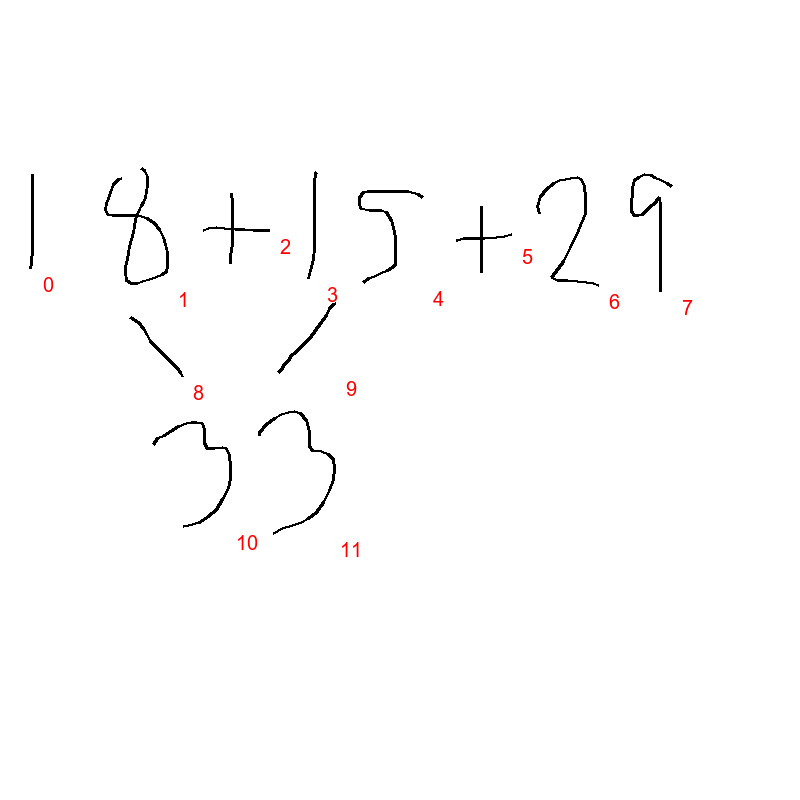 18+15+29
0 1 2 3 4 5 6 7
8 9
33
10 11